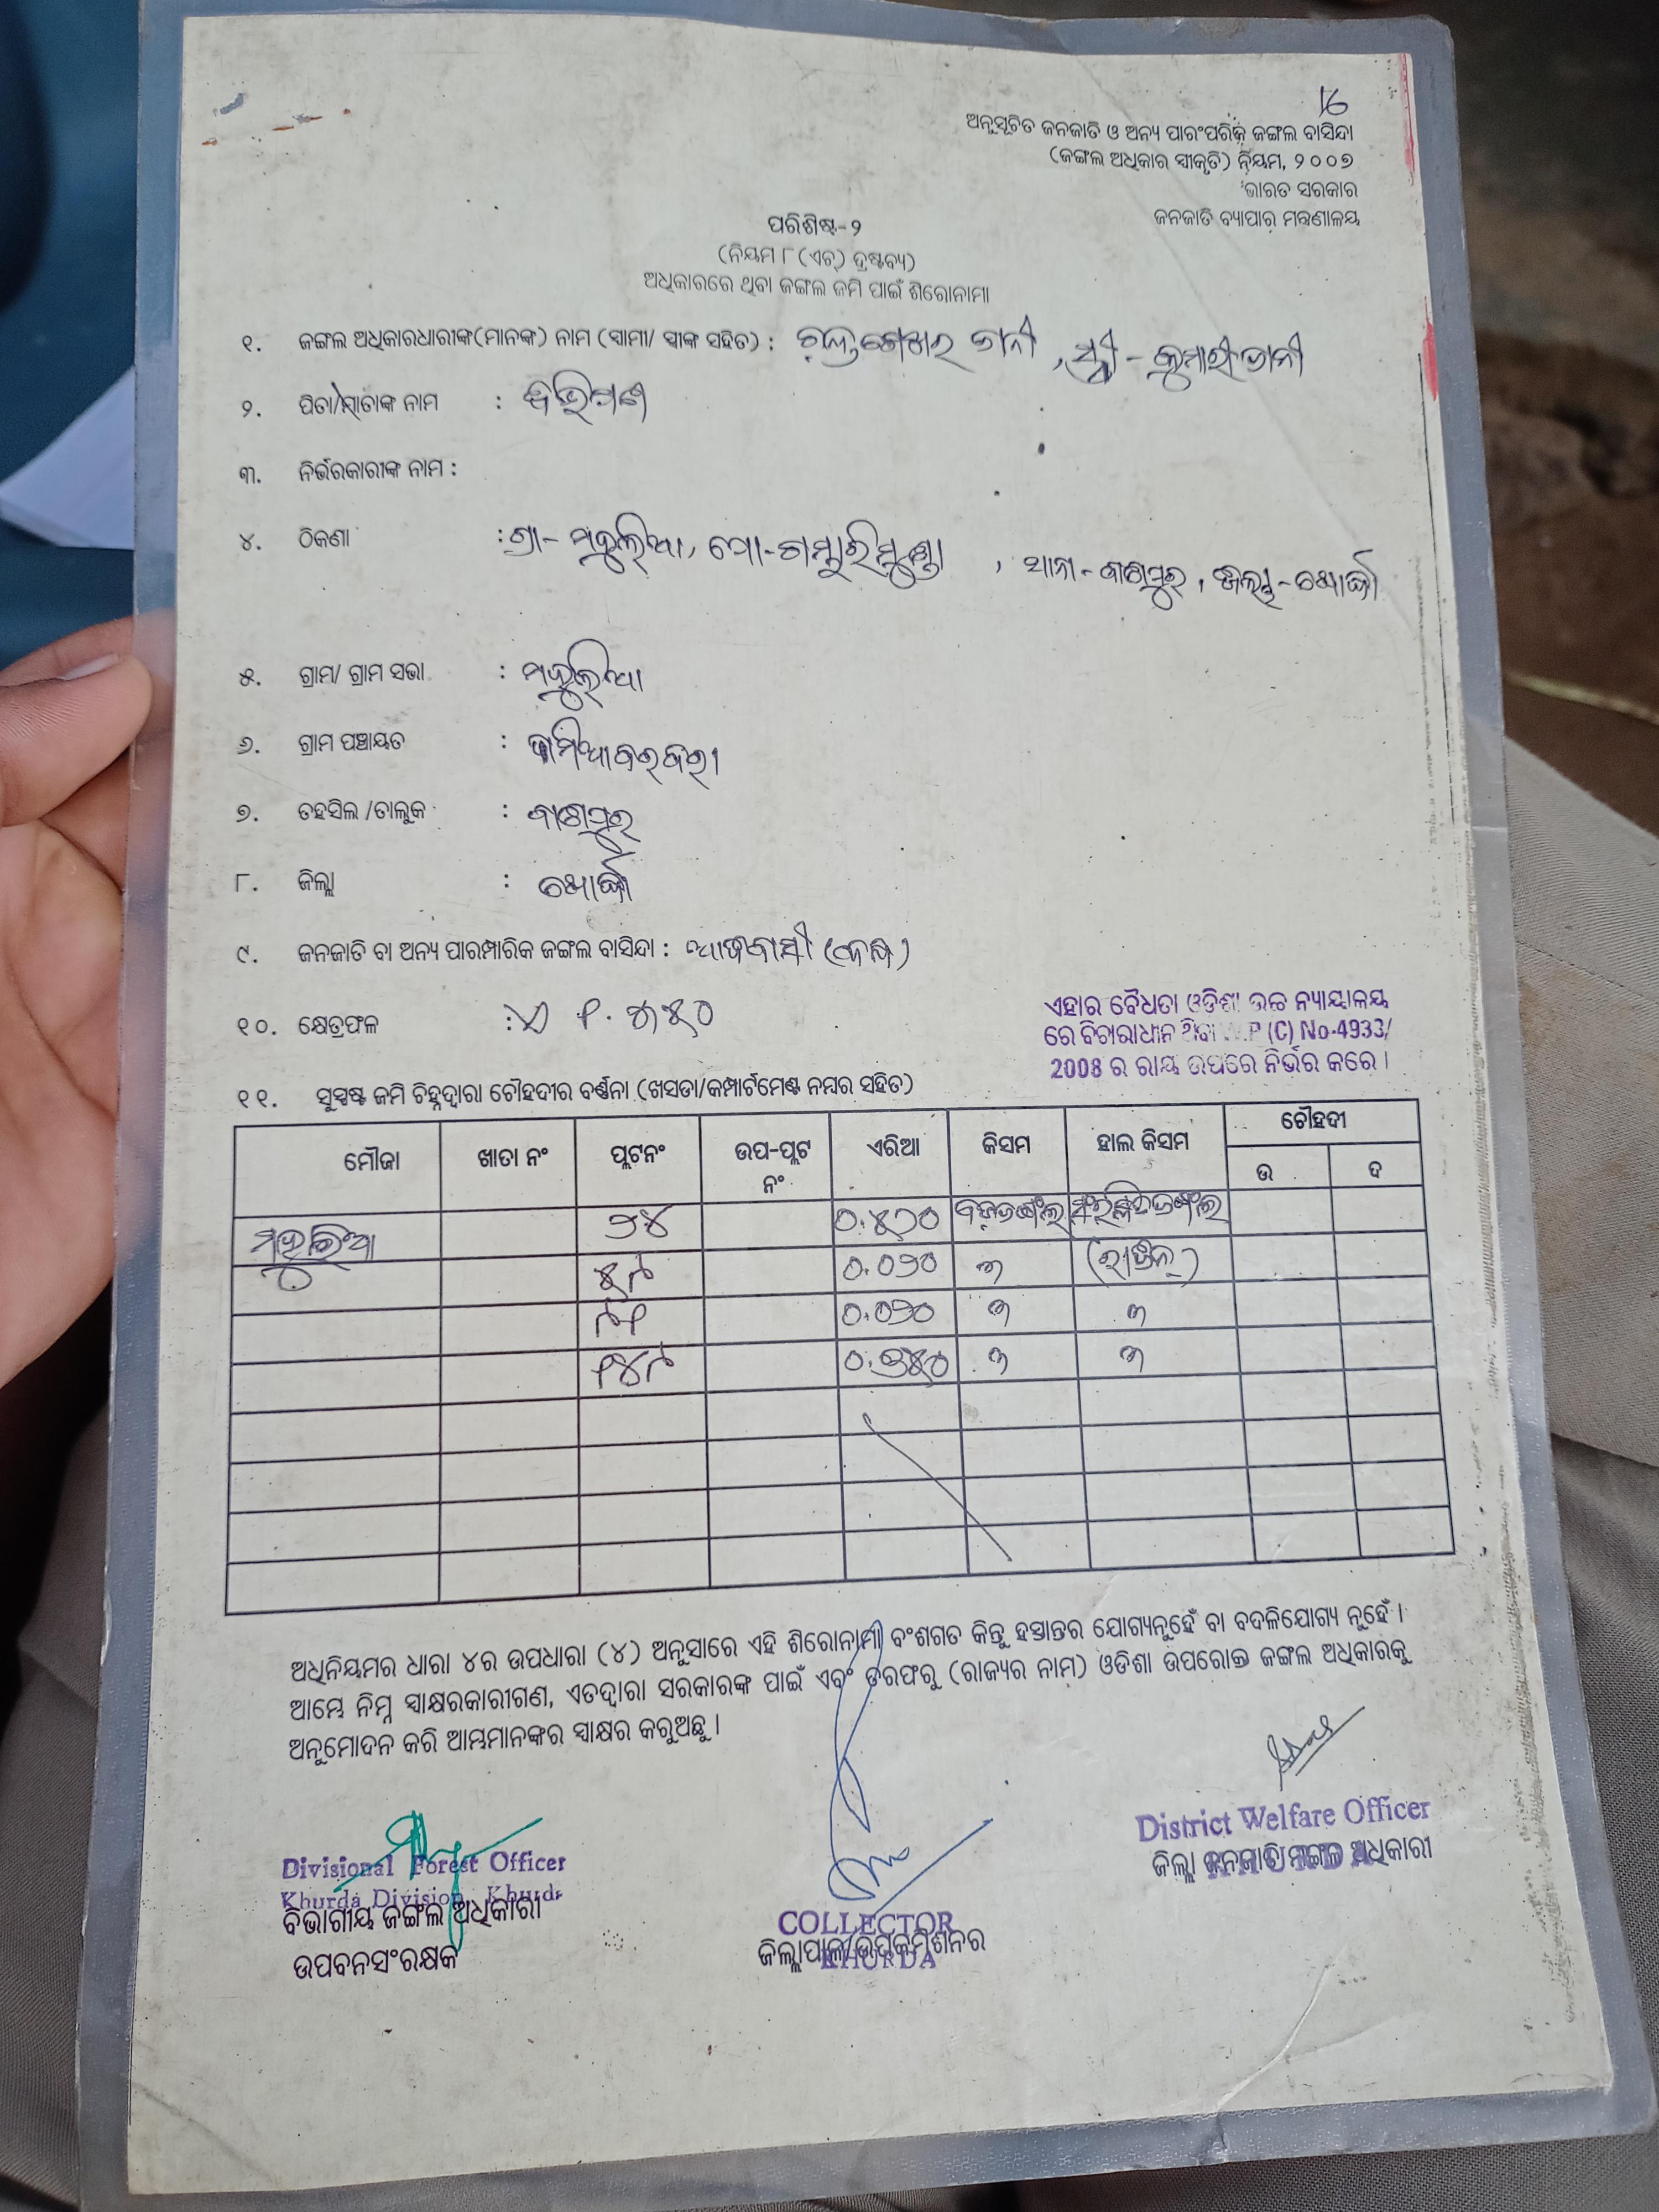 16
ଅନୁସୂଚିତ ଜନଜାତି ଓ ଅନ୍ୟ ପାରଂପରିକ ଜଙ୍ଗଲ ବାସିନ୍ଦା
(ଜଙ୍ଗଲ ଅଧିକାର ସ୍ୱୀକୃତି) ନିୟମ, ୨୦୦୭
ଭାରତ ସରକାର
ଜନଜାତି ବ୍ୟାପାର ମନ୍ତ୍ରଣାଳୟ
ପରିଶିଷ୍ଟ-୨
(ନିୟମ ୮ (ଏଚ୍) ଦ୍ରଷ୍ଟବ୍ୟ)
ଅଧିକାରରେ ଥିବା ଜଙ୍ଗଲ ଜମି ପାଇଁ ଶିରୋନାମା
୧. ଜଙ୍ଗଲ ଅଧିକାରଧାରୀଙ୍କ(ମାନଙ୍କ) ନାମ (ସ୍ୱାମୀ/ ସ୍ତ୍ରୀଙ୍କ ସହିତ) : ଚନ୍ଦ୍ରଶେଖର ଜାନୀ , ସ୍ତ୍ରୀ - କୁମାରୀ ଜାନୀ
୨. ପିତା/ମାତାଙ୍କ ନାମ :
୩. ନିର୍ଭରକାରୀଙ୍କ ନାମ :
୪. ଠିକଣା : ଗ୍ରା- ମହୁଲିଆ, ପୋ-ଗମ୍ଭାରିମୁଣ୍ଡା , ଥାନା - ବାଣପୁର, ଜିଲ୍ଲା - ଖୋର୍ଦ୍ଧା
୫. ଗ୍ରାମ/ ଗ୍ରାମ ସଭା : ମହୁଲିଆ
୬. ଗ୍ରାମ ପଞ୍ଚାୟତ :
୭. ତହସିଲ /ତାଲୁକ : ବାଣପୁର
୮. ଜିଲ୍ଲା : ଖୋର୍ଦ୍ଧା
୯. ଜନଜାତି ବା ଅନ୍ୟ ପାରମ୍ପାରିକ ଜଙ୍ଗଲ ବାସିନ୍ଦା : ଆଦିବାସୀ
୧୦. କ୍ଷେତ୍ରଫଳ :
ଏହାର ବୈଧତା ଓଡିଶା ଉଚ୍ଚ ନ୍ୟାୟାଳୟ
ରେ ବିଚାରାଧୀନ ଥିବା W.P (C) No-4933/
2008 ର ରାୟ ଉପରେ ନିର୍ଭର କରେ ।
୧୧. ସୁସ୍ପଷ୍ଟ ଜମି ଚିହ୍ନଦ୍ୱାରା ଚୌହଦୀର ବର୍ଣ୍ଣନା (ଖସଡା/କମ୍ପାର୍ଟମେଣ୍ଟ ନମ୍ବର ସହିତ)
ମୌଜା ଖାତା ନଂ ପ୍ଲଟନଂ ଉପ-ପ୍ଲଟ ନଂ ଏରିଆ କିସମ ହାଲ କିସମ ଚୌହଦୀ
ଉ ଦ
ମହୁଲିଆ
୦.୦୨୦
୦.୦୨୦
ଅଧିନିୟମର ଧାରା ୪ର ଉପଧାରା (୪) ଅନୁସାରେ ଏହି ଶିରୋନାମା ବଂଶଗତ କିନ୍ତୁ ହସ୍ତାନ୍ତର ଯୋଗ୍ୟନୁହେଁ ବା ବଦଳିଯୋଗ୍ୟ ନୁହେଁ ।
ଆମ୍ଭେ ନିମ୍ନ ସ୍ୱାକ୍ଷରକାରୀଗଣ, ଏତଦ୍ୱାରା ସରକାରଙ୍କ ପାଇଁ ଏବଂ ତରଫରୁ (ରାଜ୍ୟର ନାମ) ଓଡିଶା ଉପରୋକ୍ତ ଜଙ୍ଗଲ ଅଧିକାରକୁ
ଅନୁମୋଦନ କରି ଆମ୍ଭମାନଙ୍କର ସ୍ୱାକ୍ଷର କରୁଅଛୁ ।
Divisional Forest Officer
Khurda Division, Khurda
ବିଭାଗୀୟ ଜଙ୍ଗଲ ଅଧିକାରୀ
ଉପବନସଂରକ୍ଷକ
COLLECTOR
ଜିଲ୍ଲାପାଳ/ଉପକମିଶନର
KHURDA
District Welfare Officer
ଜିଲ୍ଲା ଜନଜାତି ମଙ୍ଗଳ ଅଧିକାରୀ